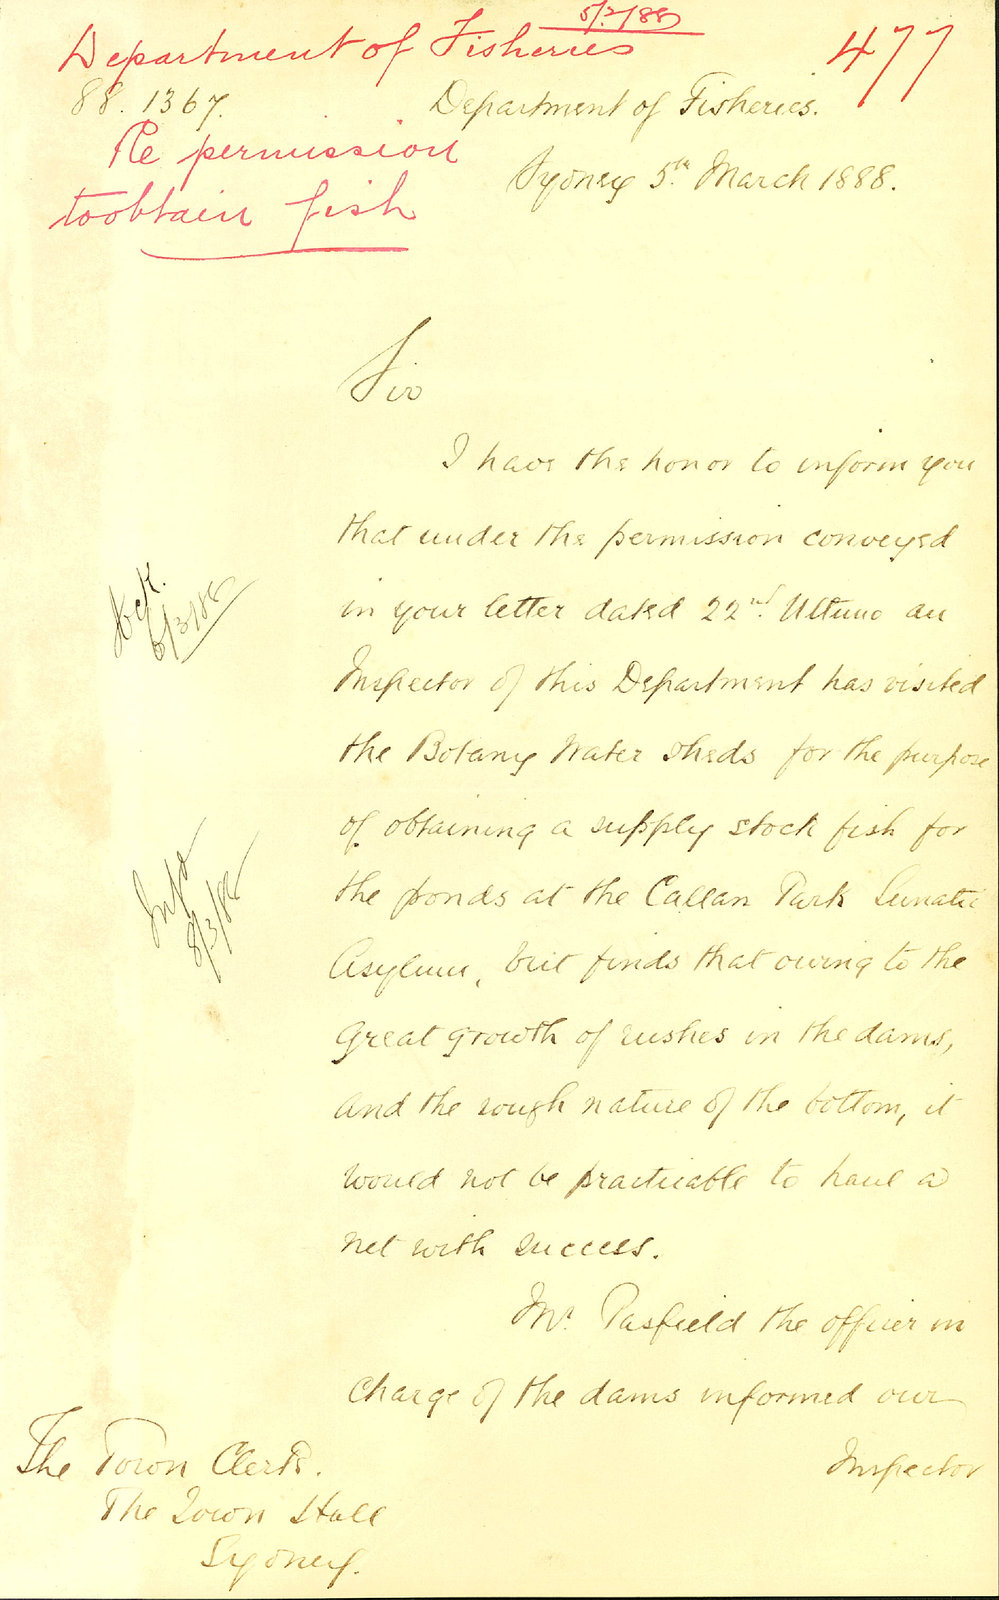 5/3/88
Department of Fisheries
477
88. 1367.
Department of Fisheries.
Re permission
to obtain fish
Sydney 5th March 1888.
Sir
I have the honor to inform you
that under the permission conveyed
in your letter dated 22nd. Ultimo an
Inspector of this Department has visited
the Botany Water Sheds for the purpose
of obtaining a supply stock fish for
the ponds at the Callan Park Lunatic
Asylum, but finds that owing to the
great growth of rushes in the dams,
and the rough nature of the bottom, it
would not be practicable to haul a
net with success.
Mr. Pasfield the officer in
charge of the dams informed our
Inspector
Ack.
6/3/88
8/3/88
The Town Clerk.
The Town Hall
Sydney.